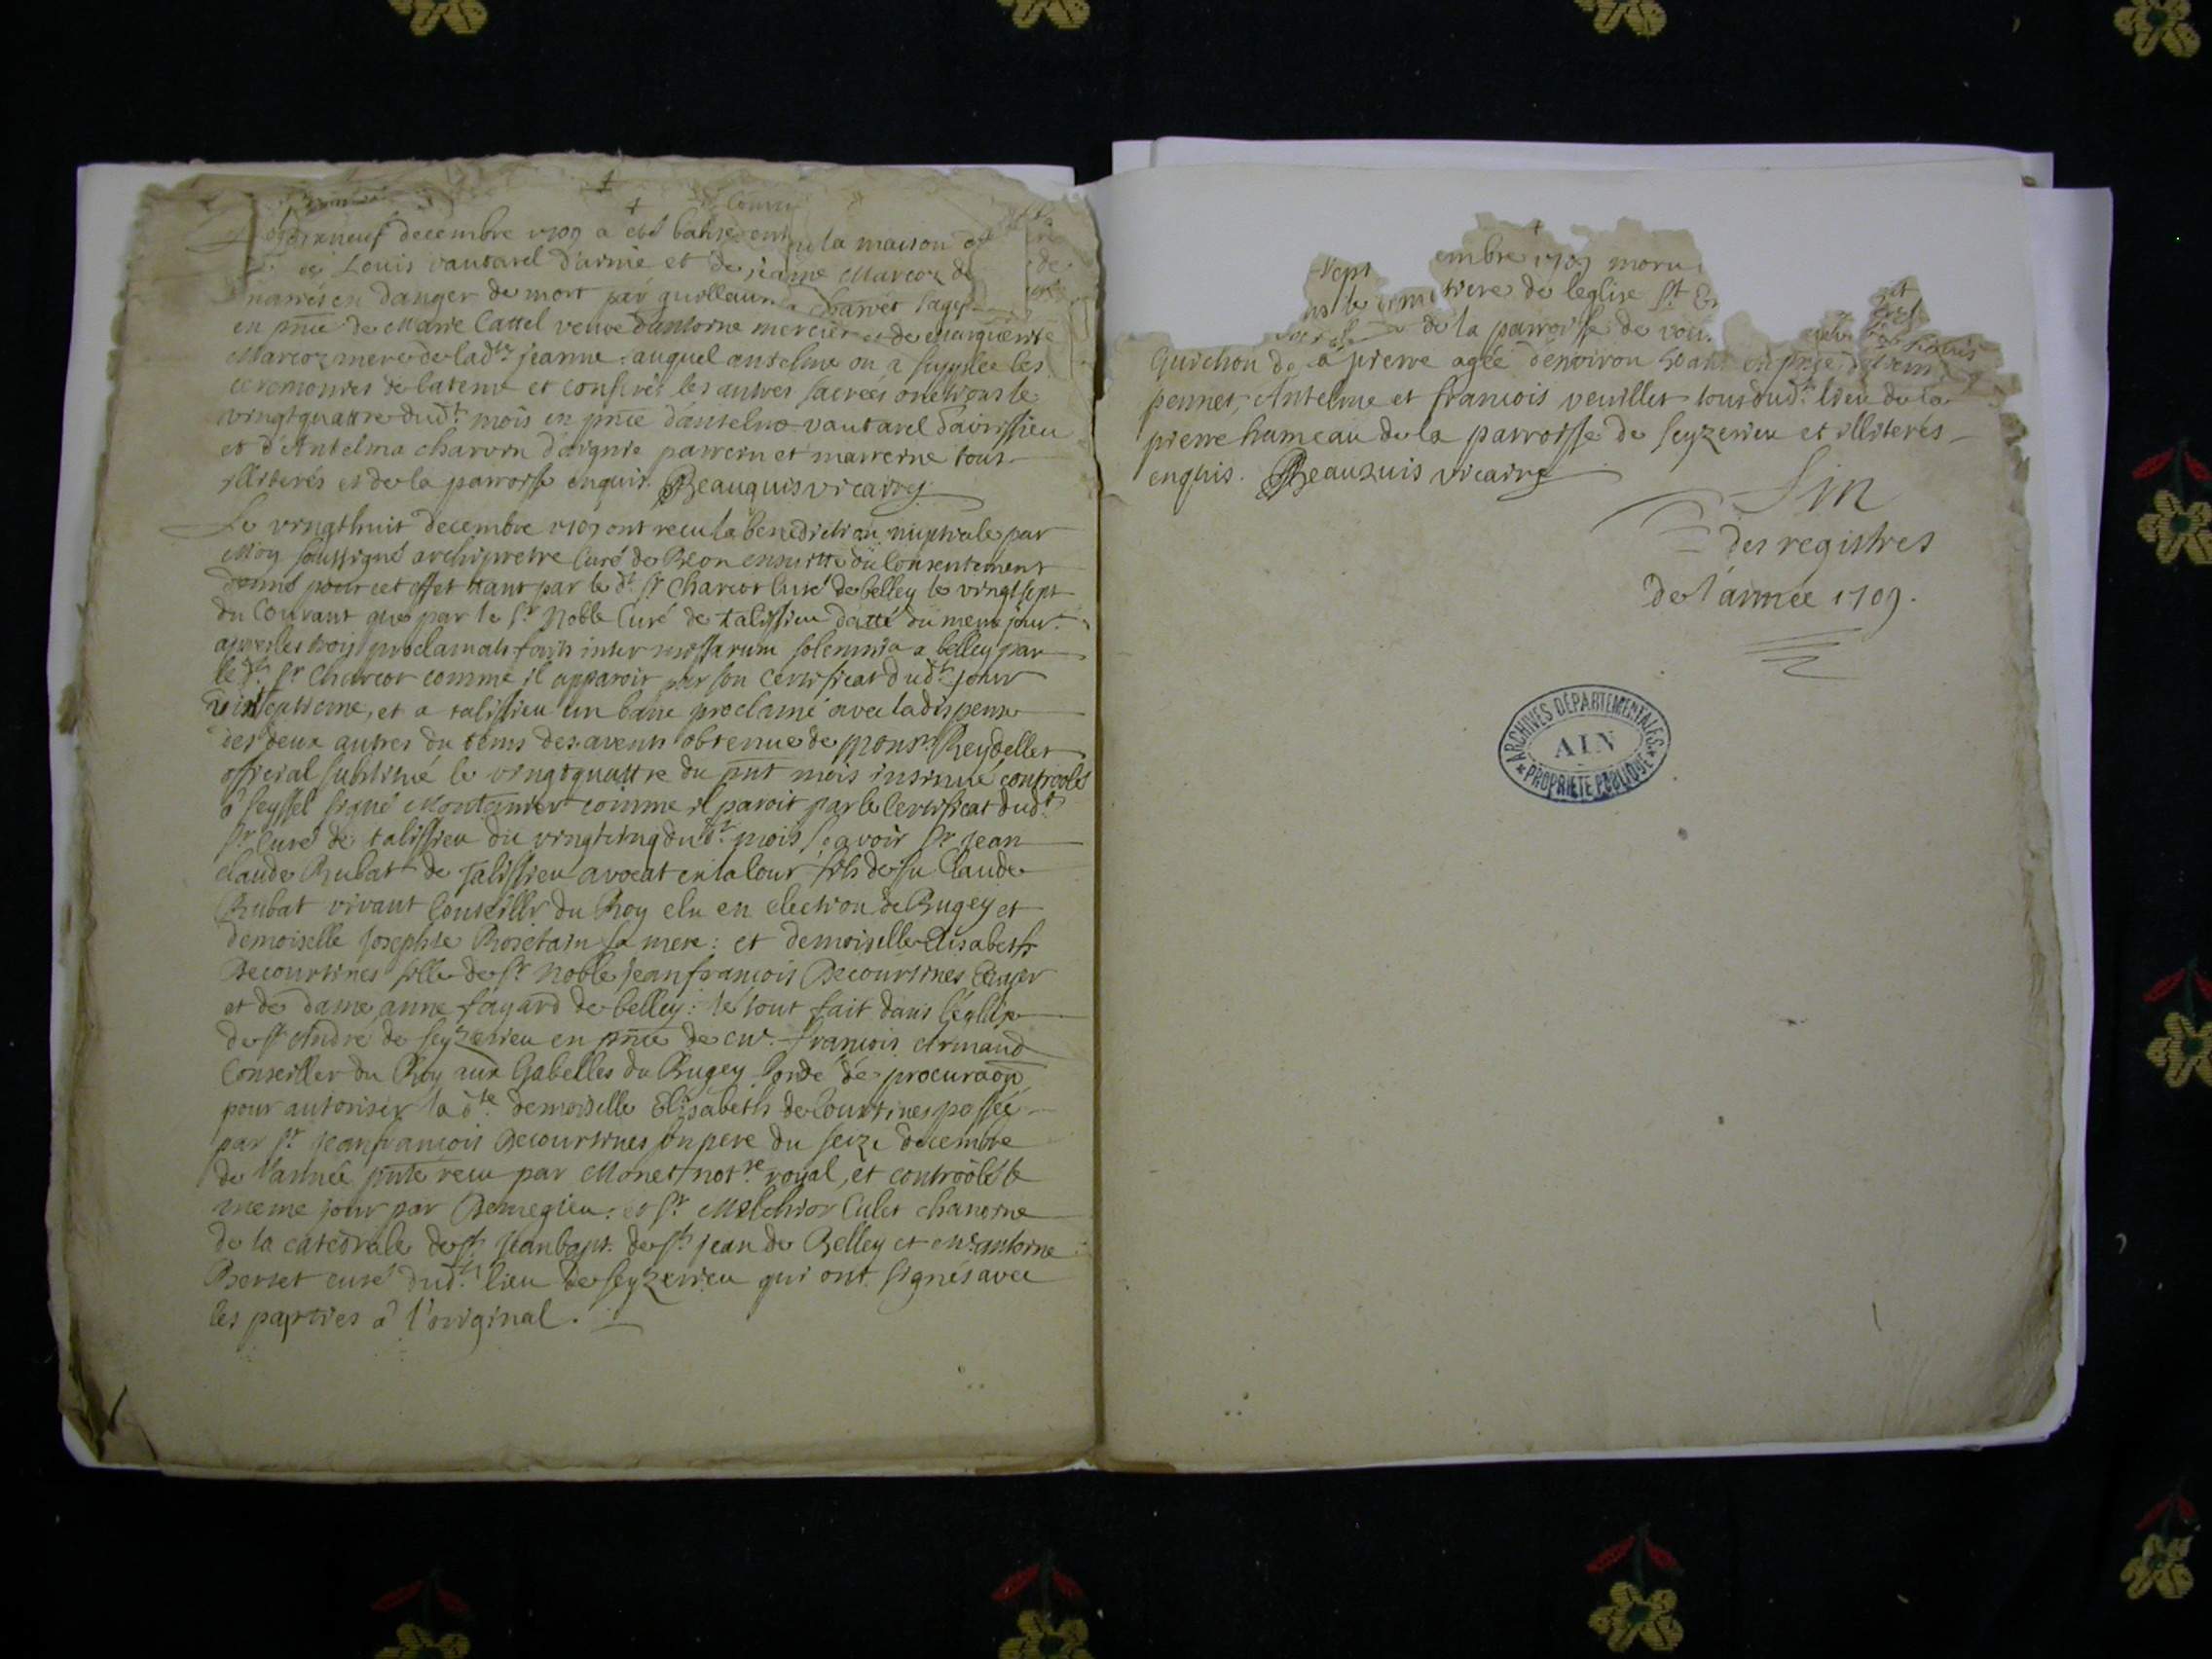 dixneuf decembre 1709 a été la maison
Louis vautarel d'aignie et de jeanne Marcoz
en danger de mort par
en pnce de Marie Cattel veuve d'antoine mercier et de
Marcoz mere de ladte jeanne. auquel antelme on a supplée les
ceremonies de bateme et conferé les autres sacrées onctions le
vingtquattre dudt mois en pnce d'antelme vautarel d'avrissieu
et d'Antelma charvin d'aignie parrein et marreine tous
illiterés et de la parroisse enquis. Beauquis vicaire
Le vingthuit decembre 1709 ont recu la benediction nuptiale par
Moy soussigné archipretre Curé de Beon ensuitte du Consentement
donné pour cet effet tant par le dt Sr Charcot Curé de belley le vingtsept
du Courant que par le Sr Noble Curé de talissieu datté du meme jour.
apres les trois proclamats faits inter missarum solemnia a belley par
le dt Sr Charcot comme il apparoit par son Certificat dudt jour
vintseptieme, et a talissieu un banc proclamé avec la dispense
des deux autres du tems des avents obtenue de Monsr Reydellet
official substitué le vingtquattre du pnt mois insinué controolé
a Seyssel signé Montanier comme il paroit par le Certificat dudt
Sr Curé de talissieu du vingtcinq dudt mois sçavoir Sr Jean
claude Rubat de Talissieu avocat en la Cour fils de fu Claude
Rubat vivant Conseiller du Roy elu en election de Bugey et
demoiselle Josephte Rosetain sa mere: et demoiselle Elisabeth
Decourtines fille de Sr Noble Jeanfrancois Decourtines Ecuyer
et de dame anne fagard de belley: le tout fait dans l'église
de St André de Seyzerieu en pnce de Me. francois Armand
Conseiller du Roy aux Gabelles du Bugey fondé de procuraon
pour autoriser la dte demoiselle Elisabeth de Courtines passée
par Sr Jeanfrancois Decourtines son pere du seize decembre
de l'année pnte recu par Monet notre royal, et controolé le
meme jour par Demegieu. et Sr Melchior Culet chanoine
de la catedrale de St Jeanbapt. de St jean de Belley et me antoine
Berset curé dudt lieu de Seyzerieu qui ont signés avec
les parties a l'original.
embre 1709
de leglise St
de la parroisse de
Guichon de la pierre agée denviron 50 ans
pennet, Antelme et francois veuillet tous dudt lieu de la
pierre hameau de la parroisse de Seyzerieu et illiterés
enquis. Beauquis vicaire
Fin
des registres
de l'année 1709.
ARCHIVES DÉPARTEMENTALES
AIN
PROPRIÉTÉ PUBLIQUE